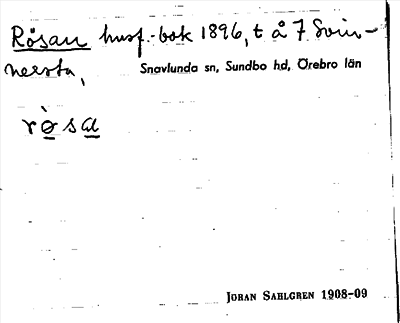 Rösan husf.-bok 1896, t å 7 Svin-
nersta,
Snavlunda sn, Sundbo hd, Örebro län
rò̱sa̱
JOHAN SAHLGREN 1908-09